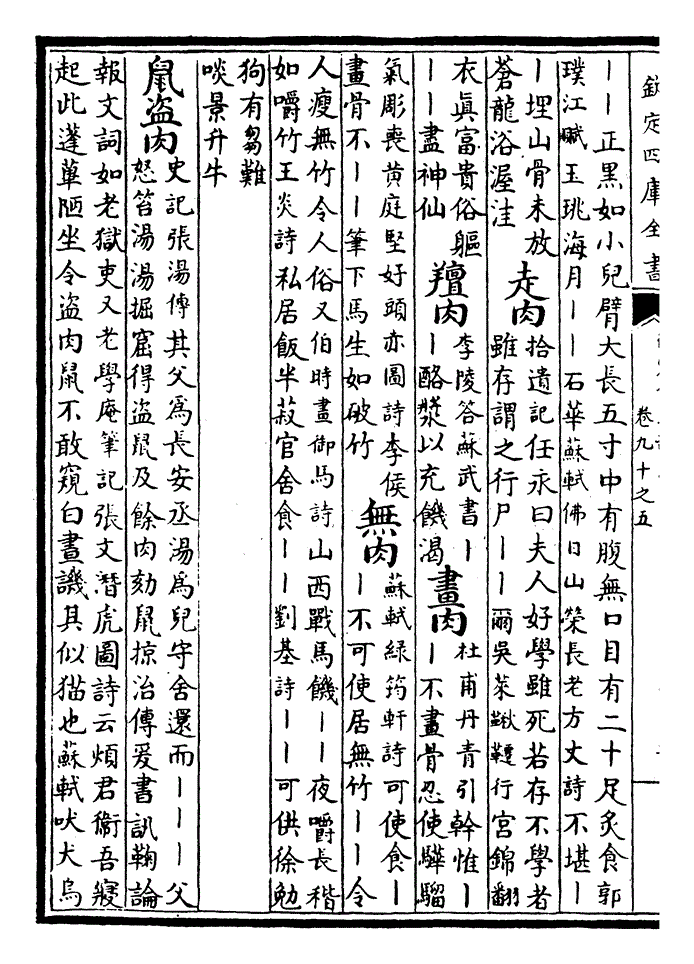 欽定四庫全書
卷九十之五
丨丨正黑如小兒臂大長五寸中有腹無口目有二十足炙食郭
璞江賦玉珧海月丨丨石華蘇軾佛日山榮長老方丈詩不堪丨
丨埋山骨未放
蒼龍浴渥洼
走肉
拾遺記任永曰夫人好學雖死若存不學者
雖存謂之行尸丨丨爾吳萊鞦韆行宮錦翻
衣眞富貴俗軀
丨丨盡神仙
羶肉
李陵答蘇武書丨
丨酪漿以充饑渴
畫肉
杜甫丹青引幹惟丨
丨不畫骨忍使驊騮
氣彫喪黄庭堅好頭赤圖詩李侯
畫骨不丨丨筆下馬生如破竹
無肉
蘇軾緑筠軒詩可使食丨
丨不可使居無竹丨丨令
人瘦無竹令人俗又伯時畫御馬詩山西戰馬饑丨丨夜嚼長稭
如嚼竹王炎詩私居飯半菽官舍食丨丨劉基詩丨丨可供徐勉
狗有芻難
啖景升牛
鼠盗肉
史記張湯傳其父爲長安丞湯爲兒守舍還而丨丨丨父
怒笞湯湯掘窟得盗鼠及餘肉劾鼠掠治傳爰書訊鞫論
報文詞如老獄吏又老學庵筆記張文潛虎圖詩云煩君衞吾寢
起此蓬蓽陋坐令盗肉鼠不敢窺白晝譏其似猫也蘇軾吠犬烏